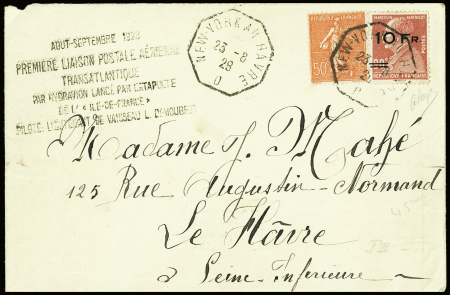 AOUT-SEPTEMBRE 1928
PREMIÈRE LIAISON POSTALE AÉRIENNE
TRANSATLANTIQUE
PAR HYDRAVION LANCÉ PAR CATAPULTE
DE L' "ILE-DE-FRANCE"
PILOTE: LIEUTENANT DE VAISSEAU L. DEMOUGEOT
NEW-YORK AU HAVRE
23-8
28
50c
10 Fr
NEW-YORK
Madame J. Mahé
125 Rue Augustin-Normand
Le Hâvre
Seine-Inférieure